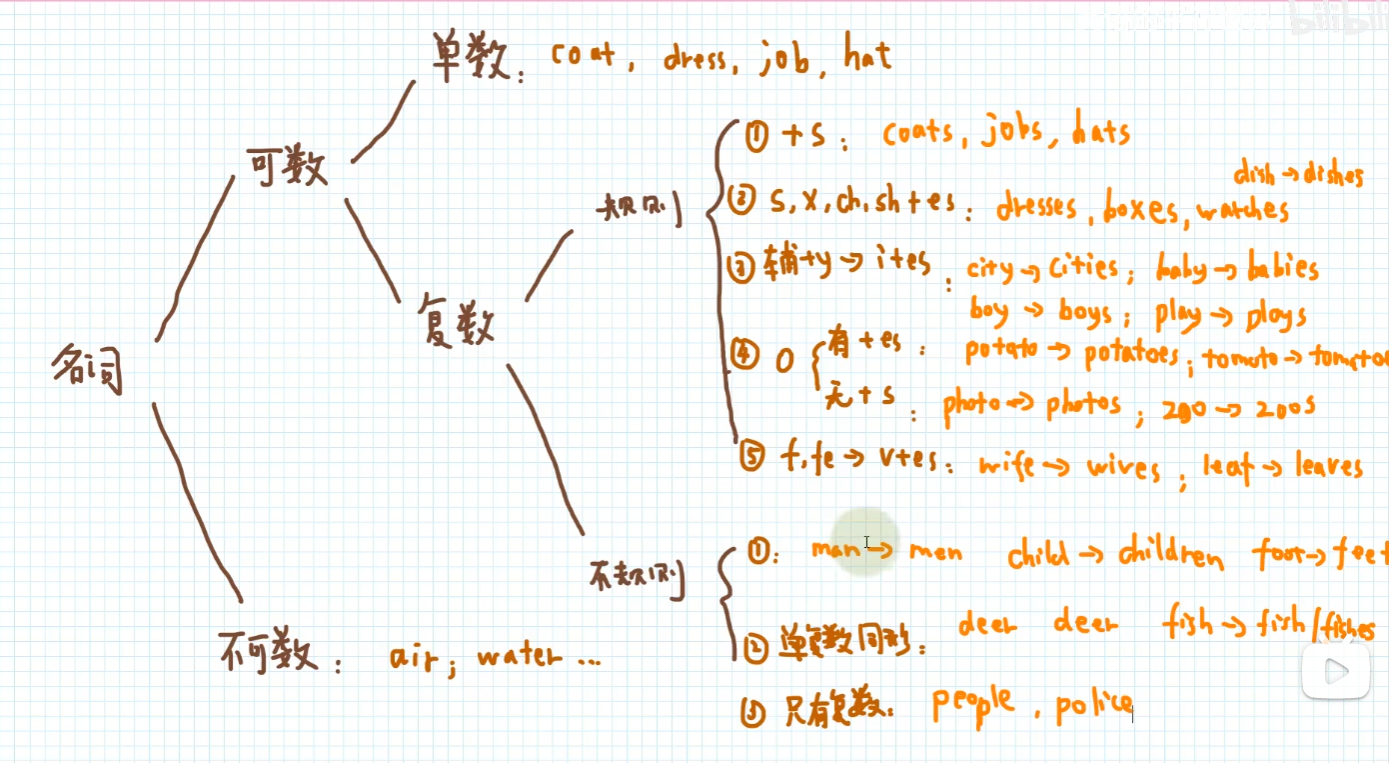 bilibili
单数：coat, dress, job, hat
可数
规则
① +s：coats, jobs, hats
dish→dishes
② s, x, ch, sh+es：dresses, boxes, watches
③ 辅+y→i+es：city→cities；baby→babies
boy→boys；play→plays
复数
④ o
有+es：potato→potatoes；tomato→tomatoe
无+s：photo→photos；zoo→zoos
名词
⑤ f, fe→v+es：wife→wives；leaf→leaves
不规则
①：man→men child→children foot→feet
② 单复数同形：deer deer fish→fish/fishes
不可数：air；water...
③ 只有复数：people, police